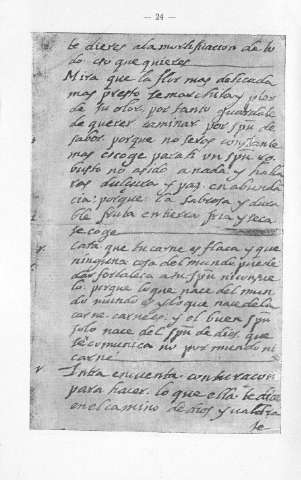 — 24 —
te dieres a la mortificacion de to
do eso que quieres
Mira que la flor mas delicada
mas presto se marchita y pierde
su olor, por tanto guardate
de querer caminar por spu de
sabor, porque no seras constante
mas escoge para ti un spu ro
busto no asido a nada y halla
ras dulçura y paz en abunda
cia: porque la sabrosa y dura
ble fruta en tierra fria y seca
se coge
Cata que tu carne es flaca y que
ninguna cosa del mundo puede
dar fortaleza a tu spu ni consue
lo, porque lo que nace del mun
do mundo es y lo que nace de la
carne, carne es, y el buen spu
solo nace del spu de dios, que
se comunica no por mundo ni
carne
Entra en cuenta con tu raçon
para hacer lo que ella te dice
en el camino de dios y valdra
te